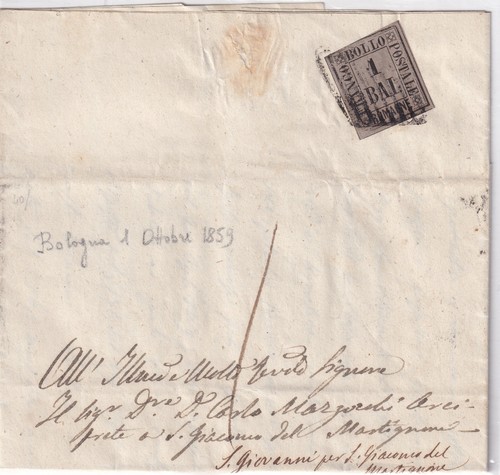 BOLLO
POSTALE
1
BAI
Bologna 1 Ottobre 1859
1
All' Illmo e Molto Revdo Signore
Il Sigr Dre D. Carlo Mazocchi Arci-
prete a S. Giacomo del Martignone
S. Giovanni per S. Giacomo del
Martignone